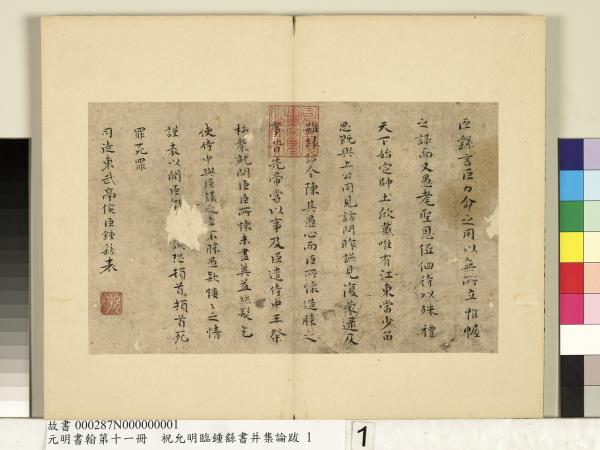 臣繇言臣力命之用以無所立惟幄
之謀而又愚耄聖恩低佪待以殊禮
天下始定師土欣戴唯有江東當少留
思既與上公同見訪問昨讌見復蒙逮及
雖緣詔令陳其愚心而臣所懷造膝之
事昔先帝嘗以事及臣遣侍中王粲
杜襲就問臣臣所懷未盡奚益絲髮乞
使侍中與臣議之臣不勝愚款慺慺之情
謹表以聞臣 誠恐頓首頓首死
罪死罪
司徒東武亭侯臣鍾繇表
故書 000287N000000001
元明書翰第十一冊 祝允明臨鍾繇書并集論跋 1
1